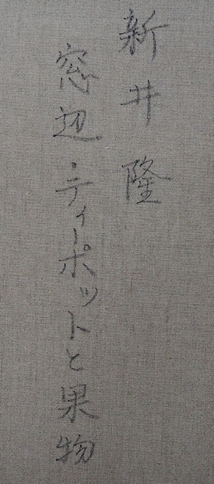 新井隆
窓辺・ティーポットと果物